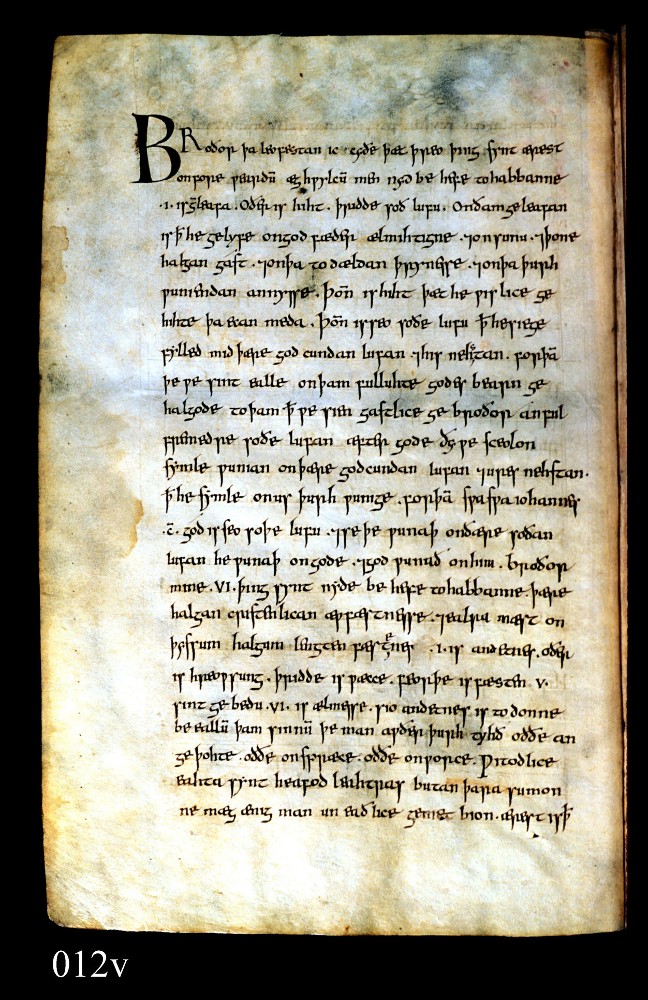 BRoðor þa leofestan ic cyðe þæt þreo þing synt ærest
onforeƿeardū æghƿylcū men nyd be hefe to habbanne
.i. is geleafa. Oðer is hiht. þridde soð lufu. Ondam geleafan
is þ̄ he gelyfe on god fæder ælmihtigne. ⁊on sunu. ⁊þone
halgan gast. ⁊onþa todældan þrynesse. ⁊onþa þurh
ƿuniendan annysse. þoñ is hiht þæt he ƿislice ge
hihte þa ecan meda. þoñ is seo soðe lufu þ̄ he sie ge
fylled mid þære godcundan lufan ⁊his nehstan. forþā
þe ƿe sint ealle onþam fulluhte godes bearn ge
halgode to þam þ̄ ƿe sien gastlice gebroðor anful
fremedre soðe lufan æfter gode ðy ƿe sceolon
symle ƿunian on þære godcundan lufan ⁊ures nehstan.
þ̄ he symle onus þurh ƿunige. forþā sƿa sƿa iohannes
.c̄. god is seo soþe lufu. ⁊se þe ƿunaþ onðære soðan
lufan he ƿunaþ on gode. ⁊god ƿunað on him. broðor
mine .VI. þing synt nyde be hefe to habbanne. þære
halgan cristenlican æfæstnesse. ⁊ealra mæst on
þyssum halgum lengten fæstene .i. is andetnes. oðer
is hreoƿsung. þridde is ƿæcce. feorþe is fæsten v.
sint gebedu .vi. is ælmesse. sio andetnes is to donne
be eallū þam sinnū þe man æfder þurh tyhð oððe an
geþohte. oððe on spræce. oððe on ƿorce. ƿitodlice
eahta synt heafod leahtras butan þara sumon
ne mæg ænig man un eadlice gemet bion. ærest is þ̄
012v